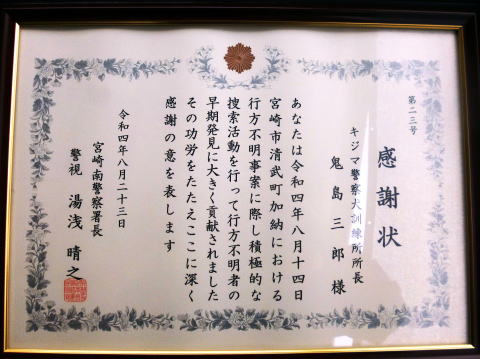 第二三号
感謝状
キジマ警察犬訓練所所長
鬼島三郎様
あなたは令和四年八月十四日
宮崎市清武町加納における
行方不明事案に際し積極的な
捜索活動を行って行方不明者の
早期発見に大きく貢献されました
その功労をたたえここに深く
感謝の意を表します
令和四年八月二十三日
宮崎南警察署長
警視 湯浅晴之